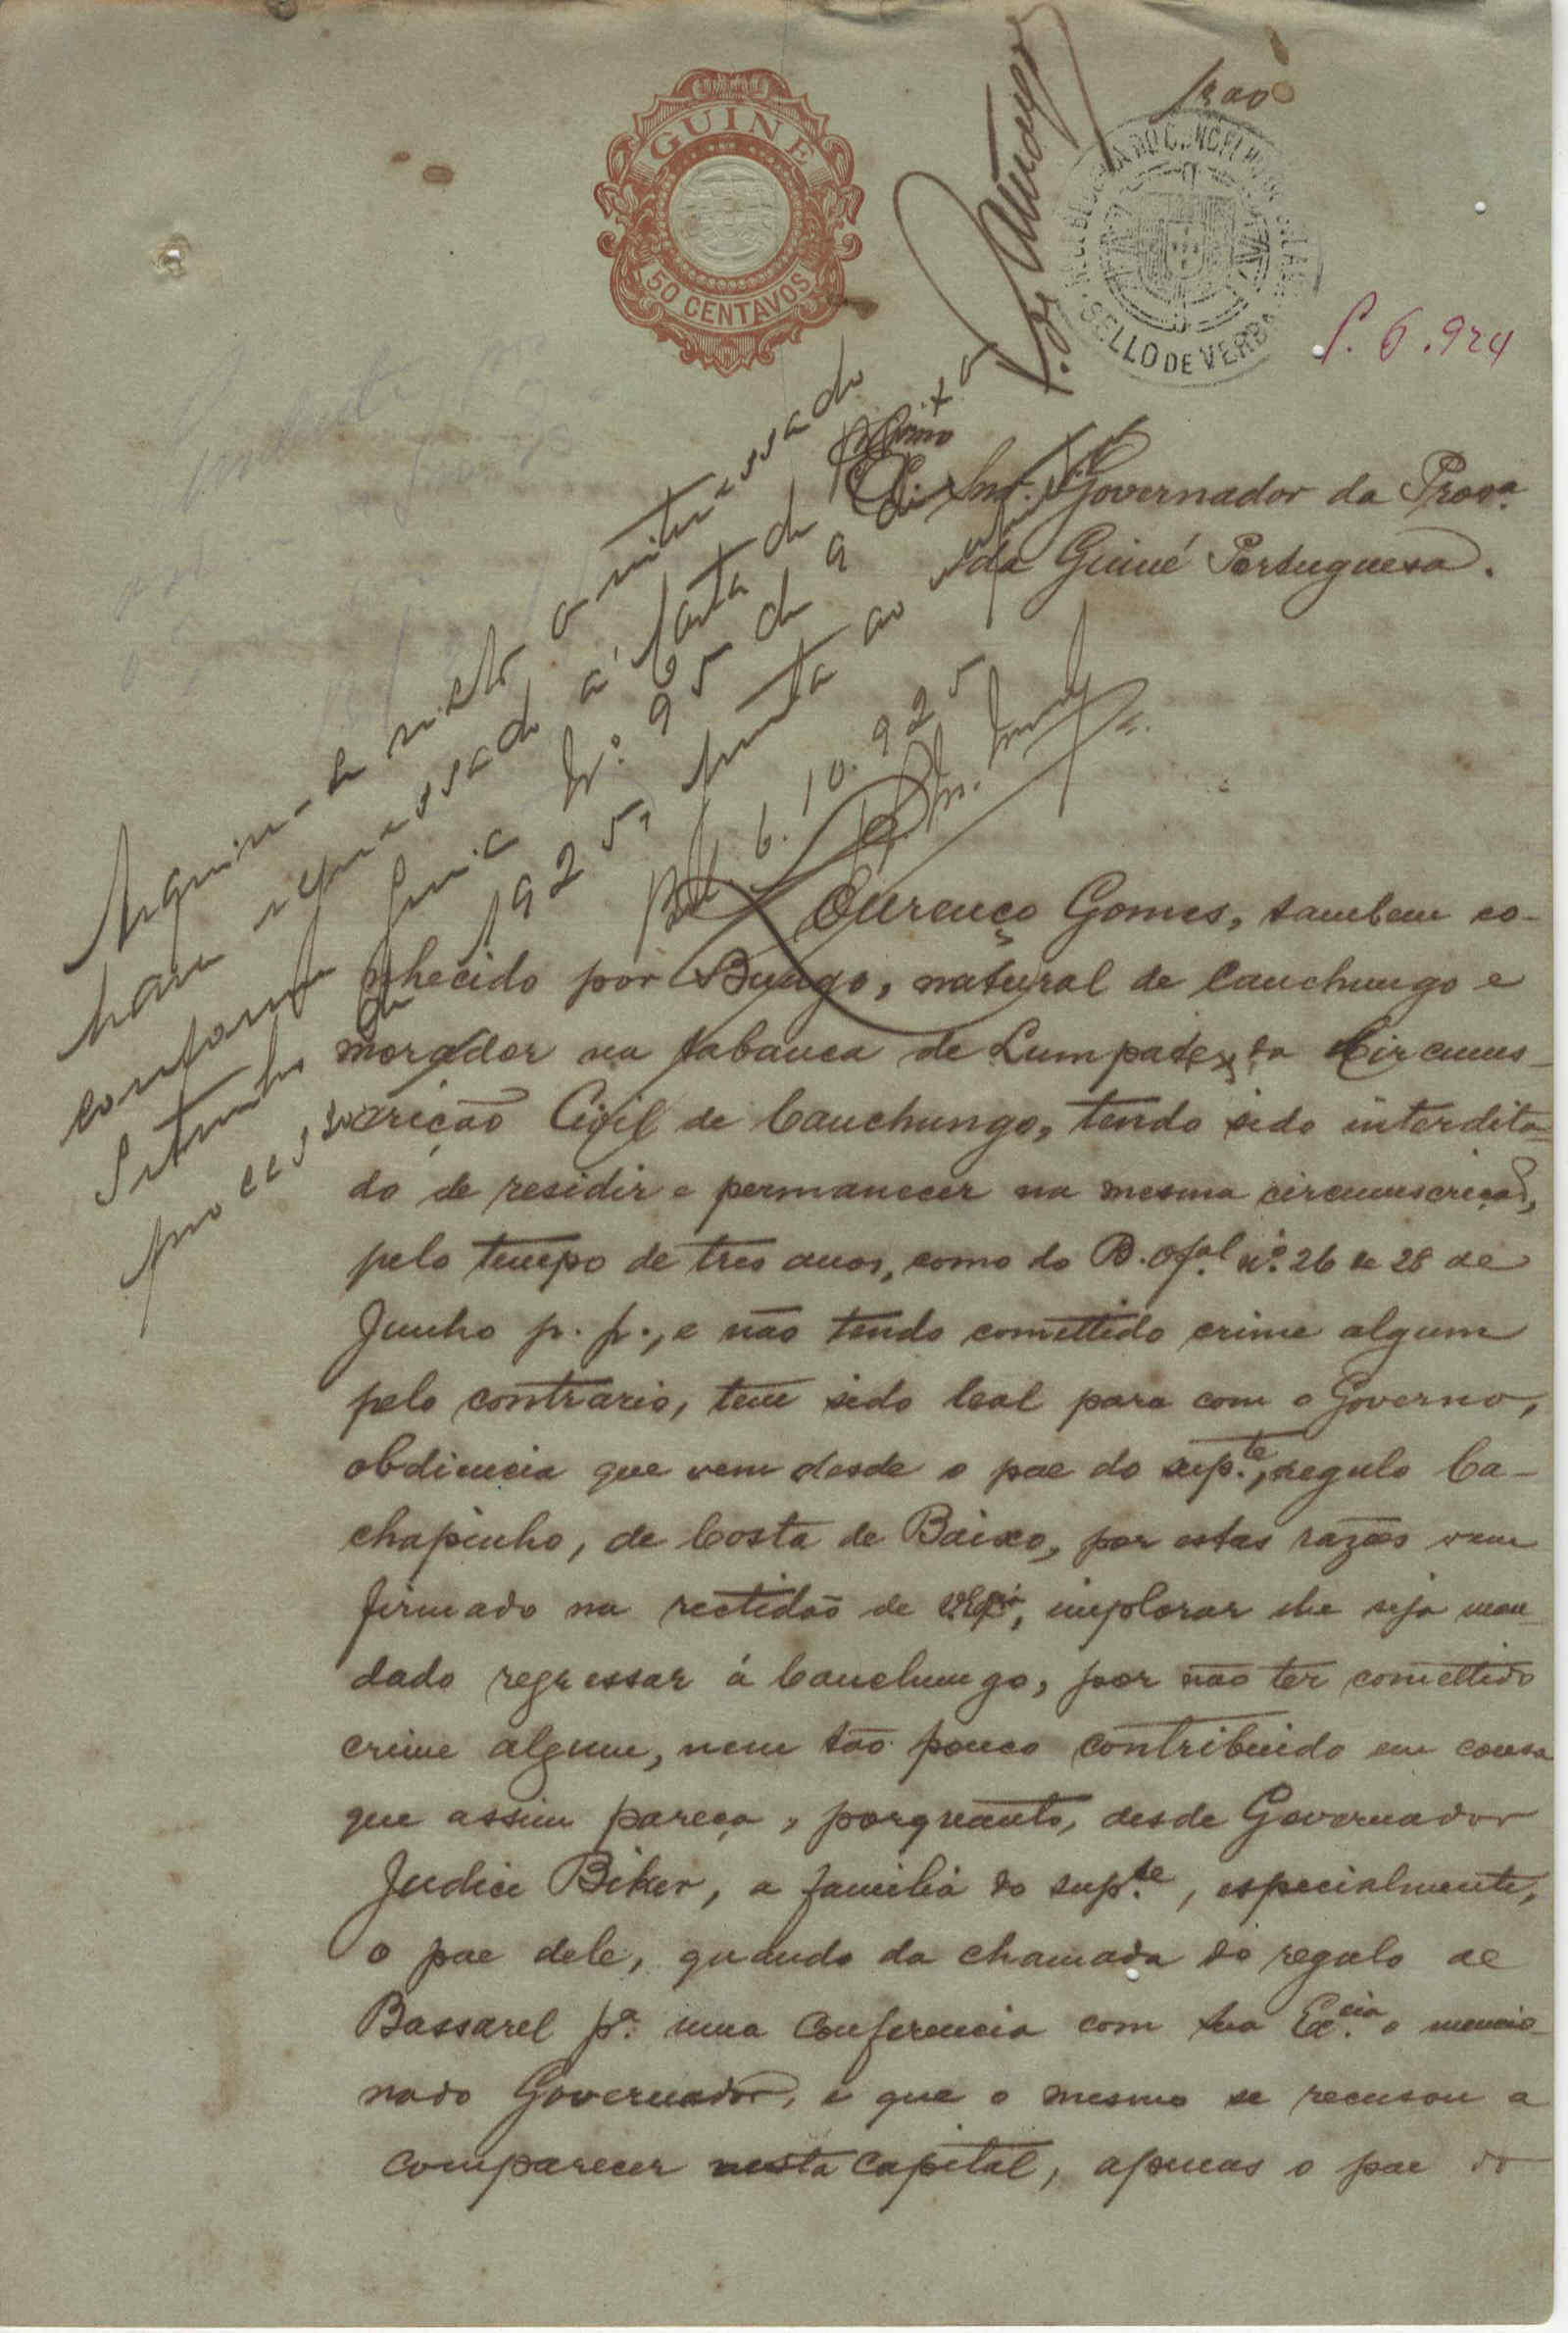 GUINE
50 CENTAVOS
SELLO DE VERBA
P. 6.924
Snr. Governador da Prova
da Guiné Portuguesa.
Arquive-se visto o interessado
haver regressado á Costa de Baixo
conforme
Setembro de 1925, junta ao
processo
6.10.925
Ourenço Gomes, tambem co-
nhecido por Bungo, natural de Canchungo e
morador na tabanca de Lumpate, da Circuns-
crição Civil de Canchungo, tendo sido interdita-
do de residir e permanecer na mesma circunscrição,
pelo tempo de tres anos, como do B. Ofal nº 26 de 28 de
Junho p. p., e não tendo comettido crime algum
pelo contrario, tem sido leal para com o Governo,
obdiencia que vem desde o pae do supte, regulo Ca-
chapinho, de Costa de Baixo, por estas razões vem
firmado na rectidão de VExa, implorar lhe seja man-
dado regressar á Canchungo, por não ter comettido
crime algum, nem tão pouco contribuido em cousa
que assim pareça, porquanto, desde Governador
Judice Biker, a familia do supte, especialmente,
o pae dele, quando da chamada do regulo de
Bassarel pa uma Conferencia com sua Excia o mencio-
nado Governador, e que o mesmo se recusou a
comparecer nesta Capital, apenas o pae do